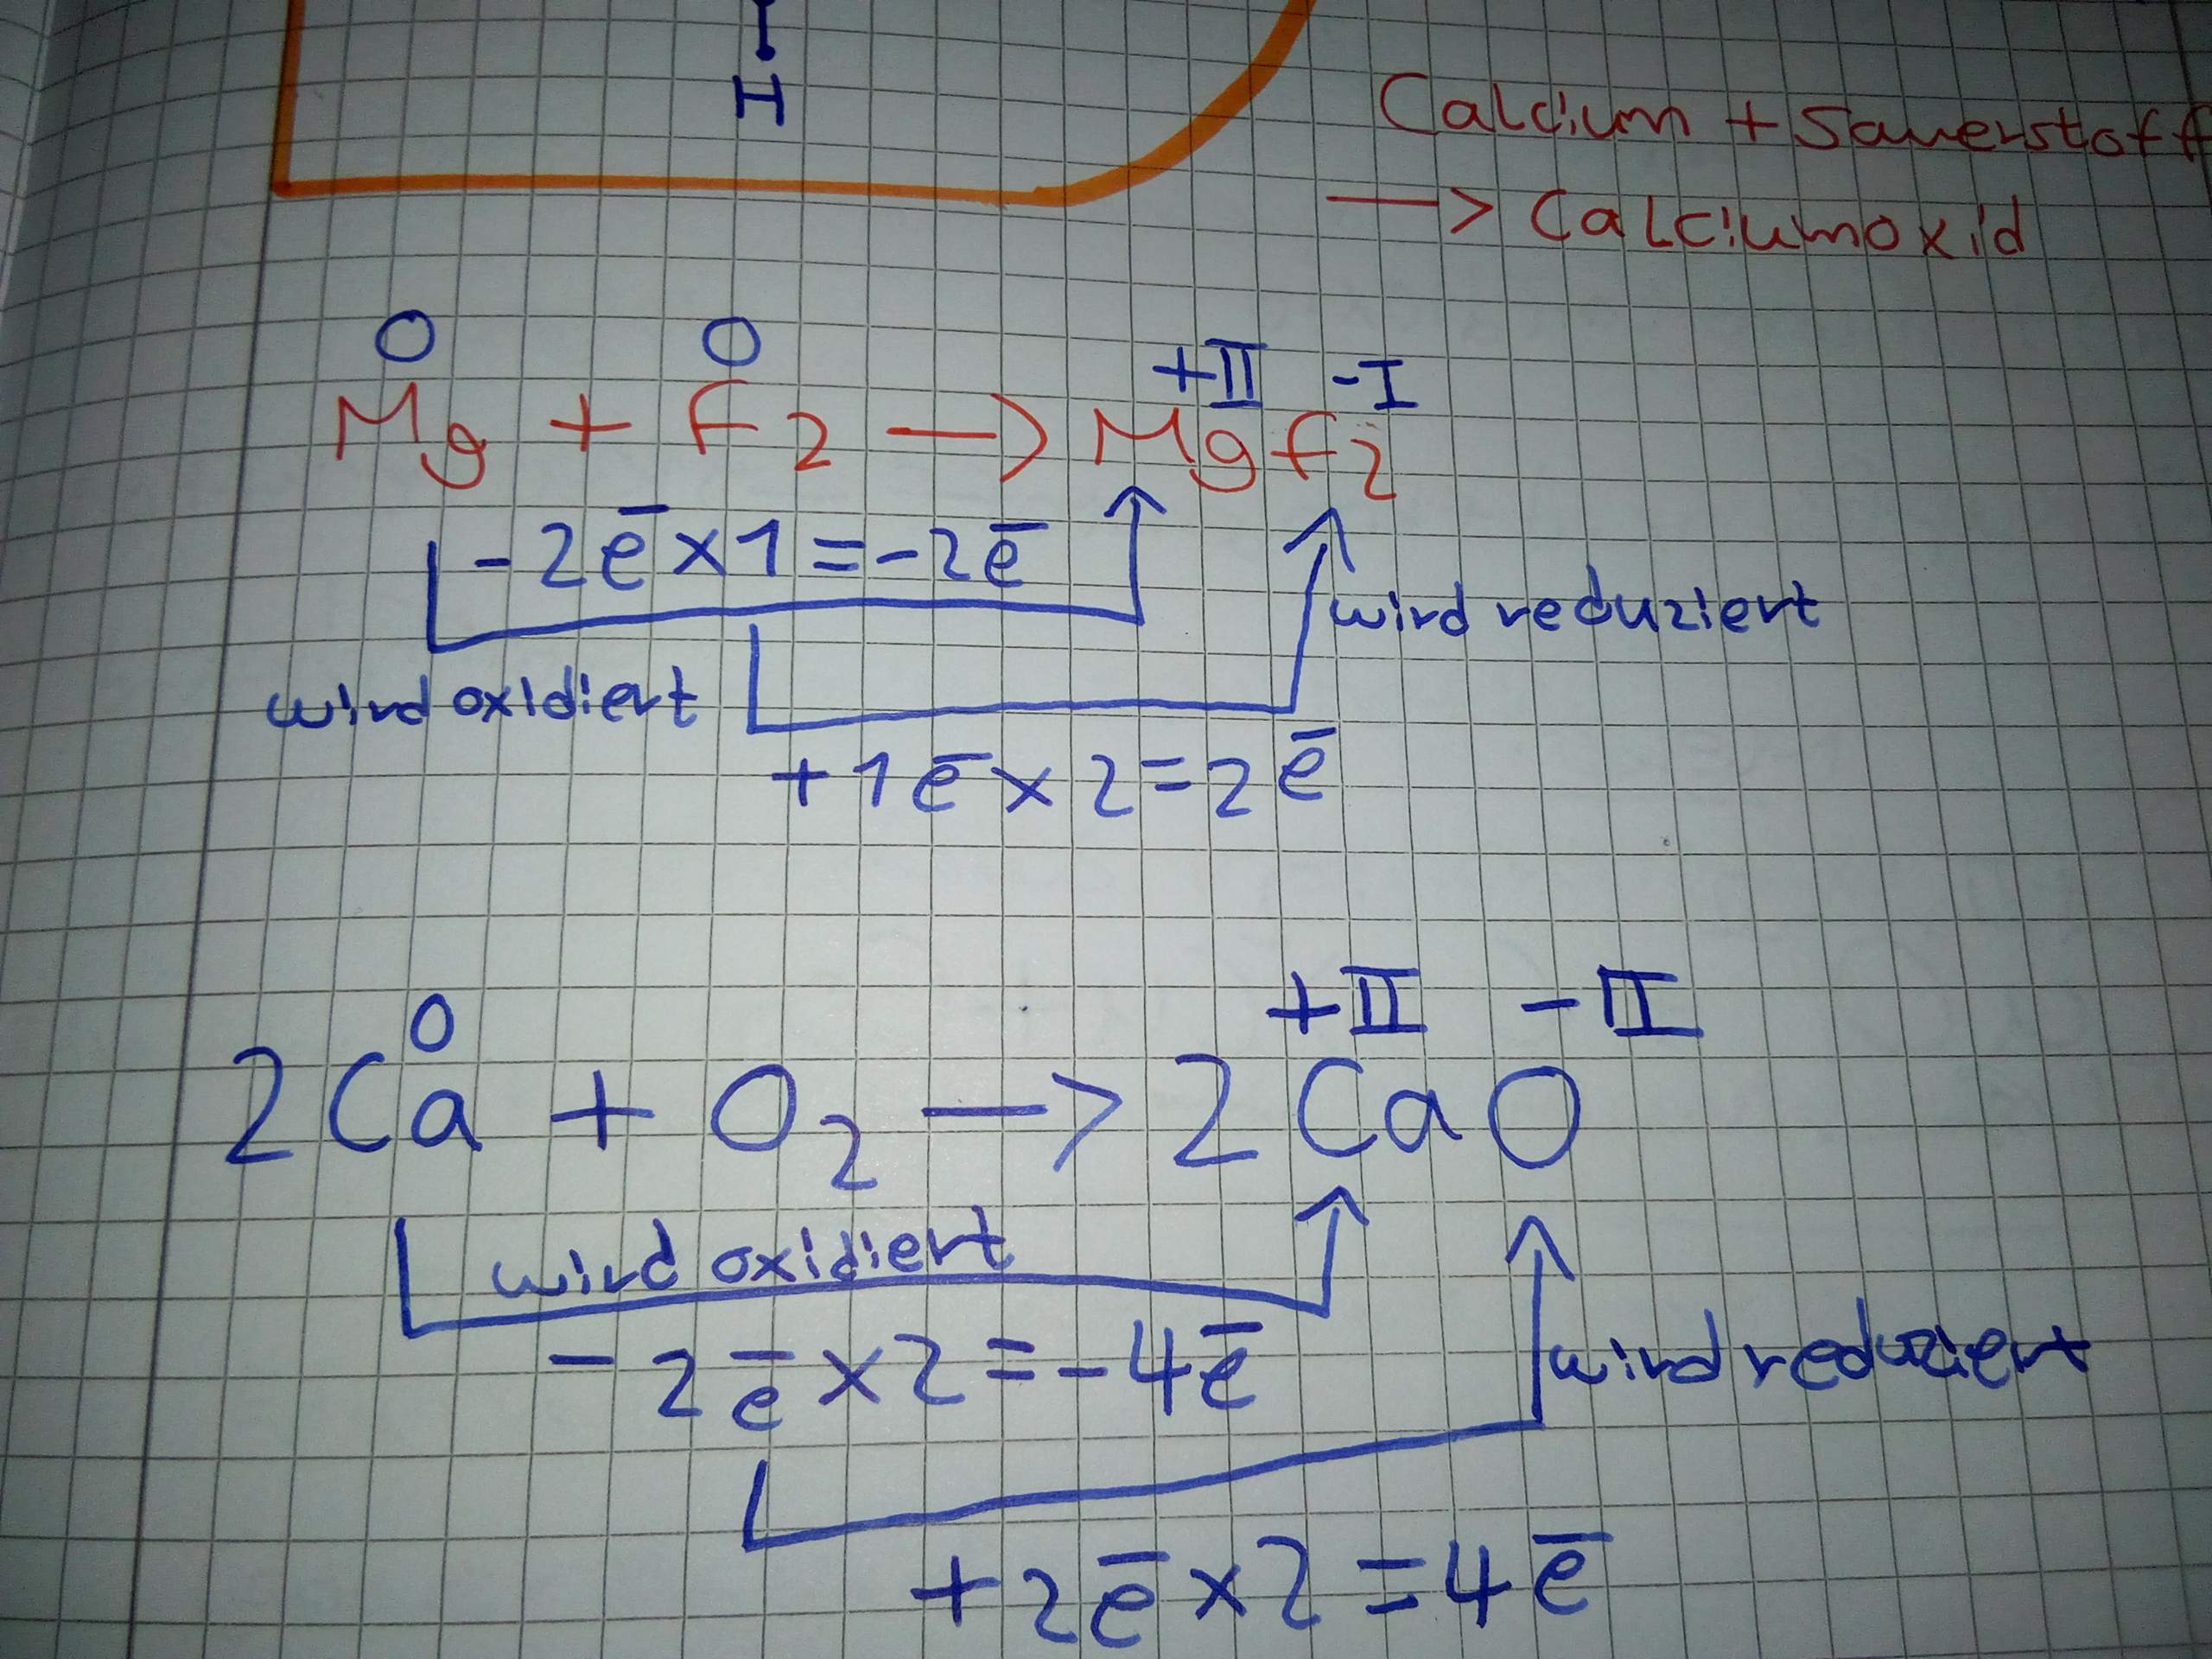 H
Calcium + Sauerstoff
—> Calciumoxid
0 0 +II -I
Mg + F2 —> MgF2
-2e⁻ x 1 = -2e⁻
wird reduziert
wird oxidiert
+1e⁻ x 2 = 2e⁻
0 +II -II
2Ca + O2 —> 2CaO
wird oxidiert
-2e⁻ x 2 = -4e⁻
wird reduziert
+2e⁻ x 2 = 4e⁻